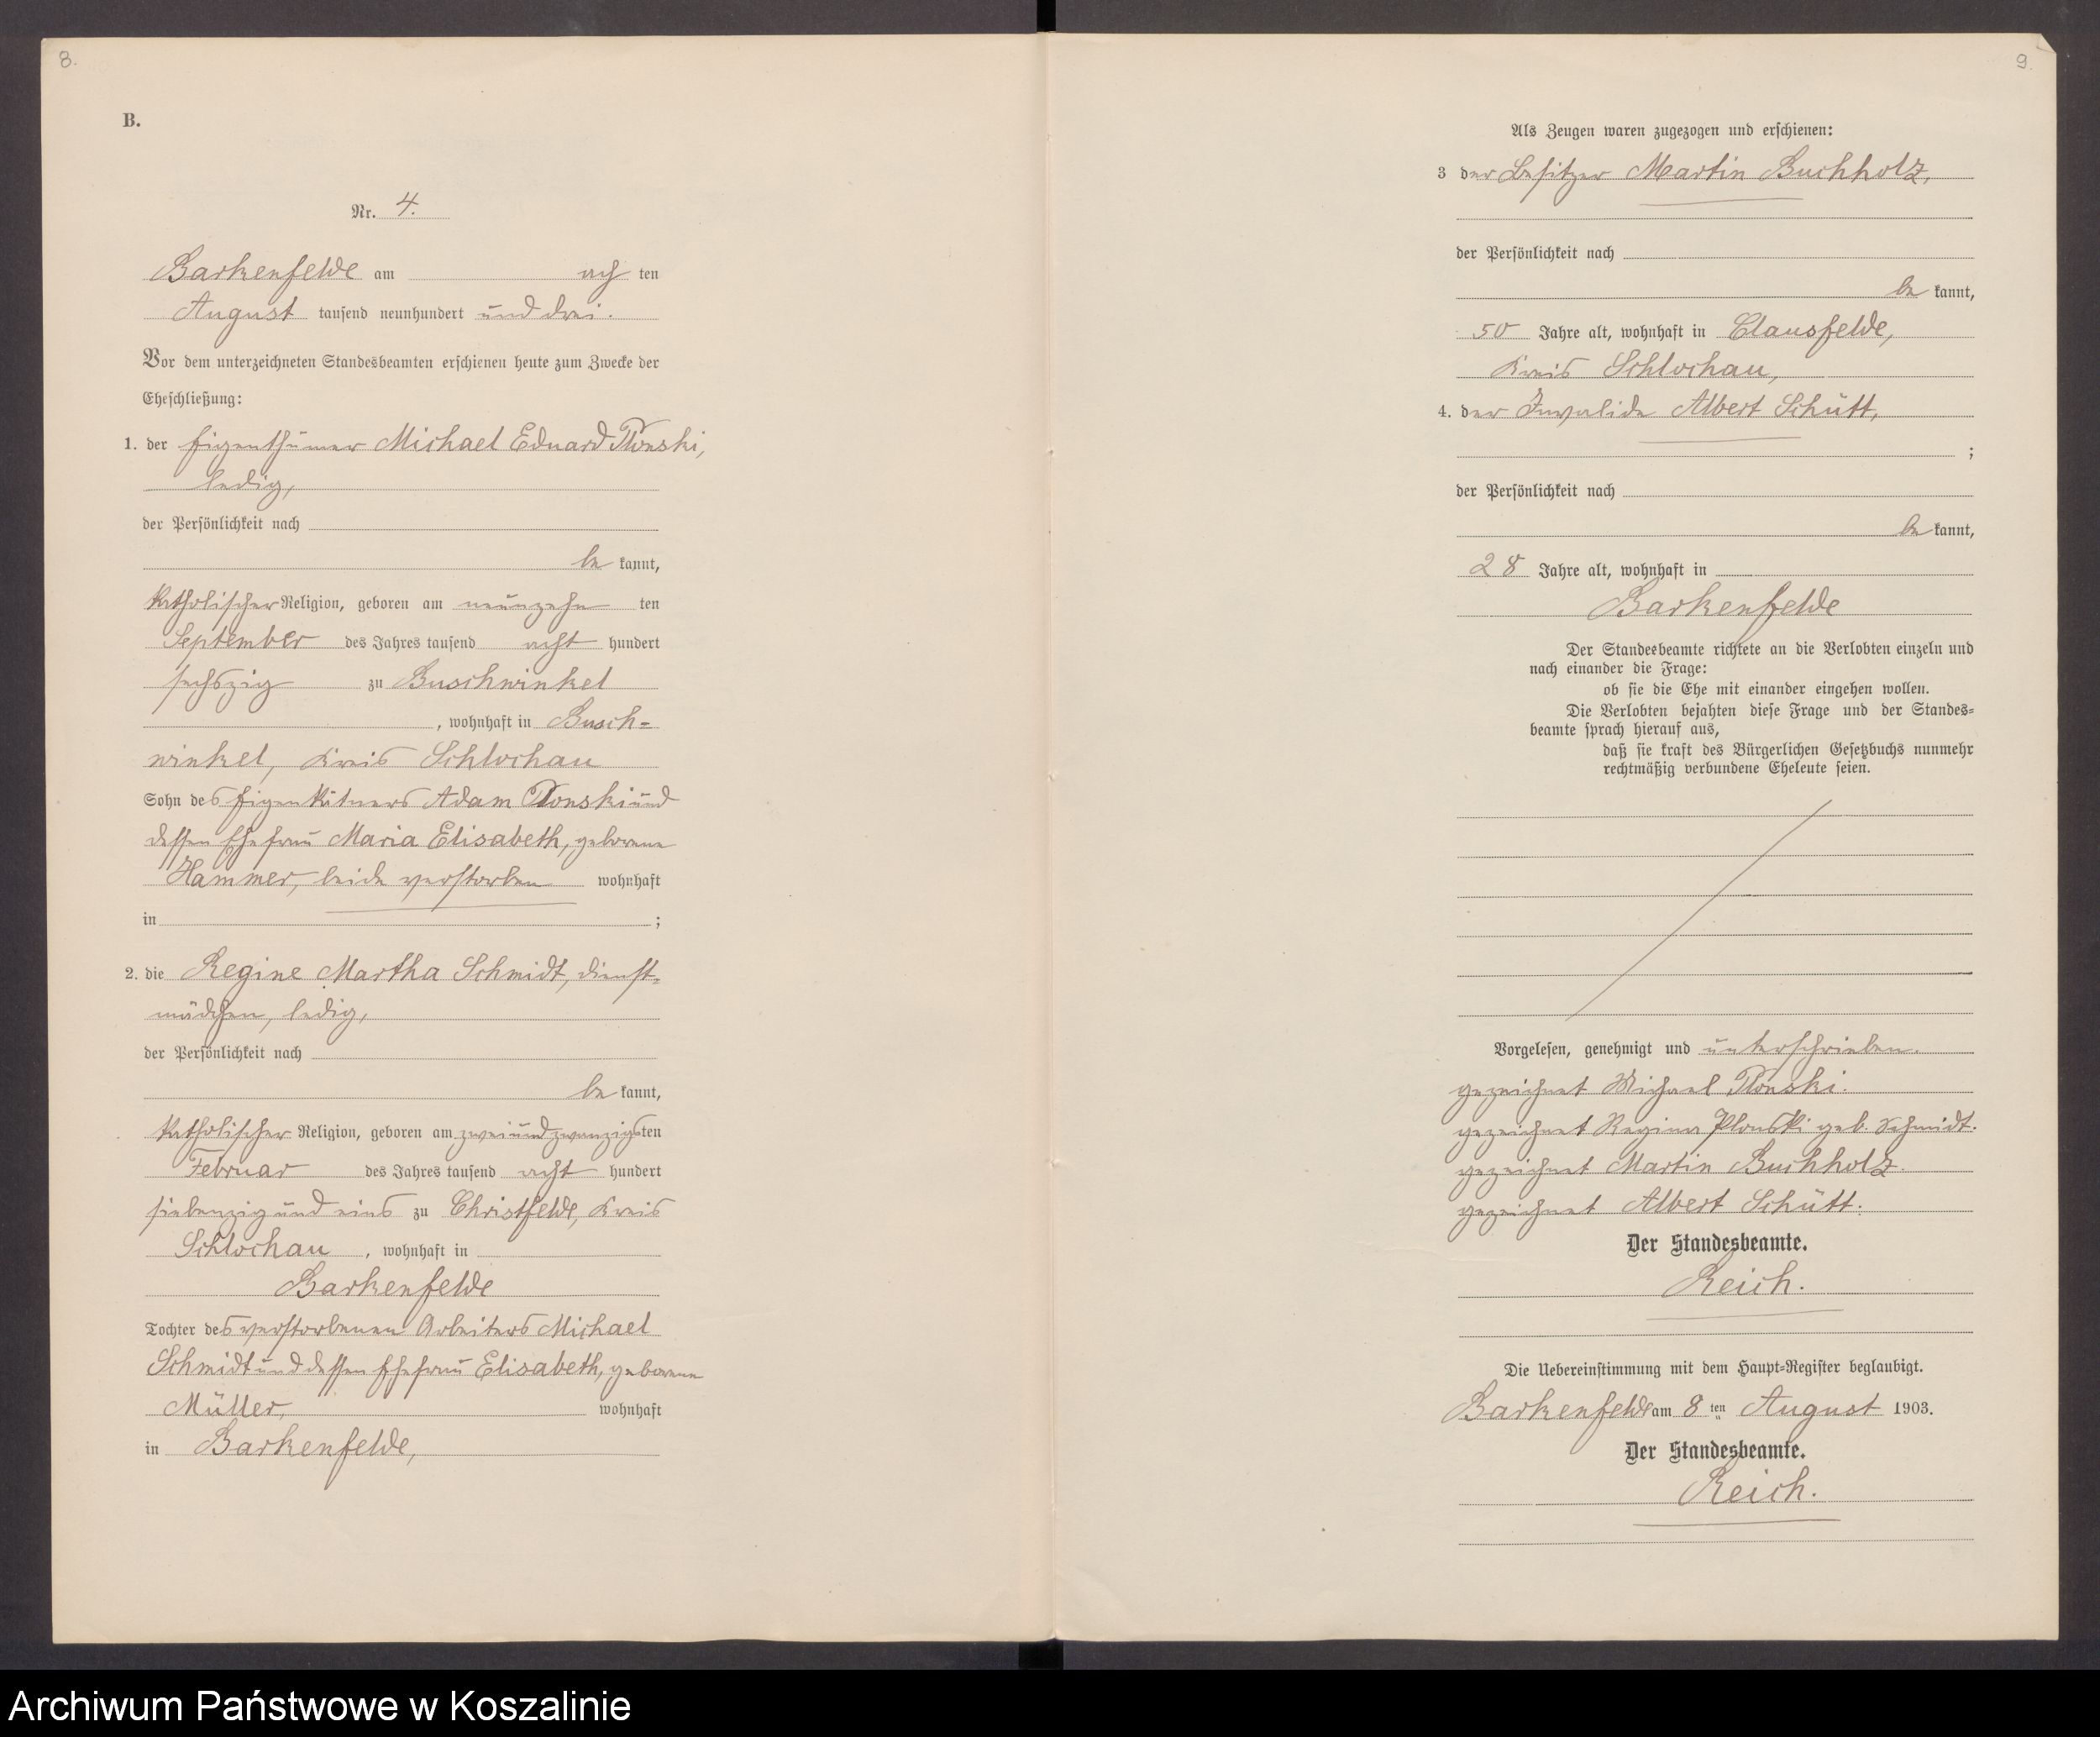 8.
B.
Nr. 4.
Barkenfelde am ach ten
August tausend neunhundert und drei.
Vor dem unterzeichneten Standesbeamten erschienen heute zum Zwecke der
Eheschließung:
1. der Eigenthümer Michael Eduard Plonski,
ledig,
der Persönlichkeit nach
be kannt,
katholischer Religion, geboren am neunzehn ten
September des Jahres tausend acht hundert
sechszig zu Buschwinkel
, wohnhaft in Busch-
winkel, Kreis Schlochau
Sohn des Eigenkätners Adam Plonski und
dessen Ehefrau Maria Elisabeth, geborene
Hammer, beide verstorben wohnhaft
in ;
2. die Regine Martha Schmidt, Dienst-
mädchen, ledig,
der Persönlichkeit nach
be kannt,
katholischer Religion, geboren am zweiundzwanzigsten
Februar des Jahres tausend acht hundert
siebenzig und eins zu Christfelde, Kreis
Schlochau , wohnhaft in
Barkenfelde
Tochter des verstorbenen Arbeiters Michael
Schmidt und dessen Ehefrau Elisabeth, geborene
Müller, wohnhaft
in Barkenfelde,
9.
Als Zeugen waren zugezogen und erschienen:
3 der Besitzer Martin Buchholz,
der Persönlichkeit nach
be kannt,
50 Jahre alt, wohnhaft in Clausfelde,
Kreis Schlochau,
4. der Invalide Albert Schütt,
;
der Persönlichkeit nach
be kannt,
28 Jahre alt, wohnhaft in
Barkenfelde
Der Standesbeamte richtete an die Verlobten einzeln und
nach einander die Frage:
ob sie die Ehe mit einander eingehen wollen.
Die Verlobten bejahten diese Frage und der Standes-
beamte sprach hierauf aus,
daß sie kraft des Bürgerlichen Gesetzbuchs nunmehr
rechtmäßig verbundene Eheleute seien.
Vorgelesen, genehmigt und unterschrieben.
gezeichnet Michael Plonski.
gezeichnet Regina Plonski geb. Schmidt.
gezeichnet Martin Buchholz.
gezeichnet Albert Schütt.
Der Standesbeamte.
Reich.
Die Uebereinstimmung mit dem Haupt-Register beglaubigt.
Barkenfelde am 8 ten August 1903.
Der Standesbeamte.
Reich.
Archiwum Państwowe w Koszalinie